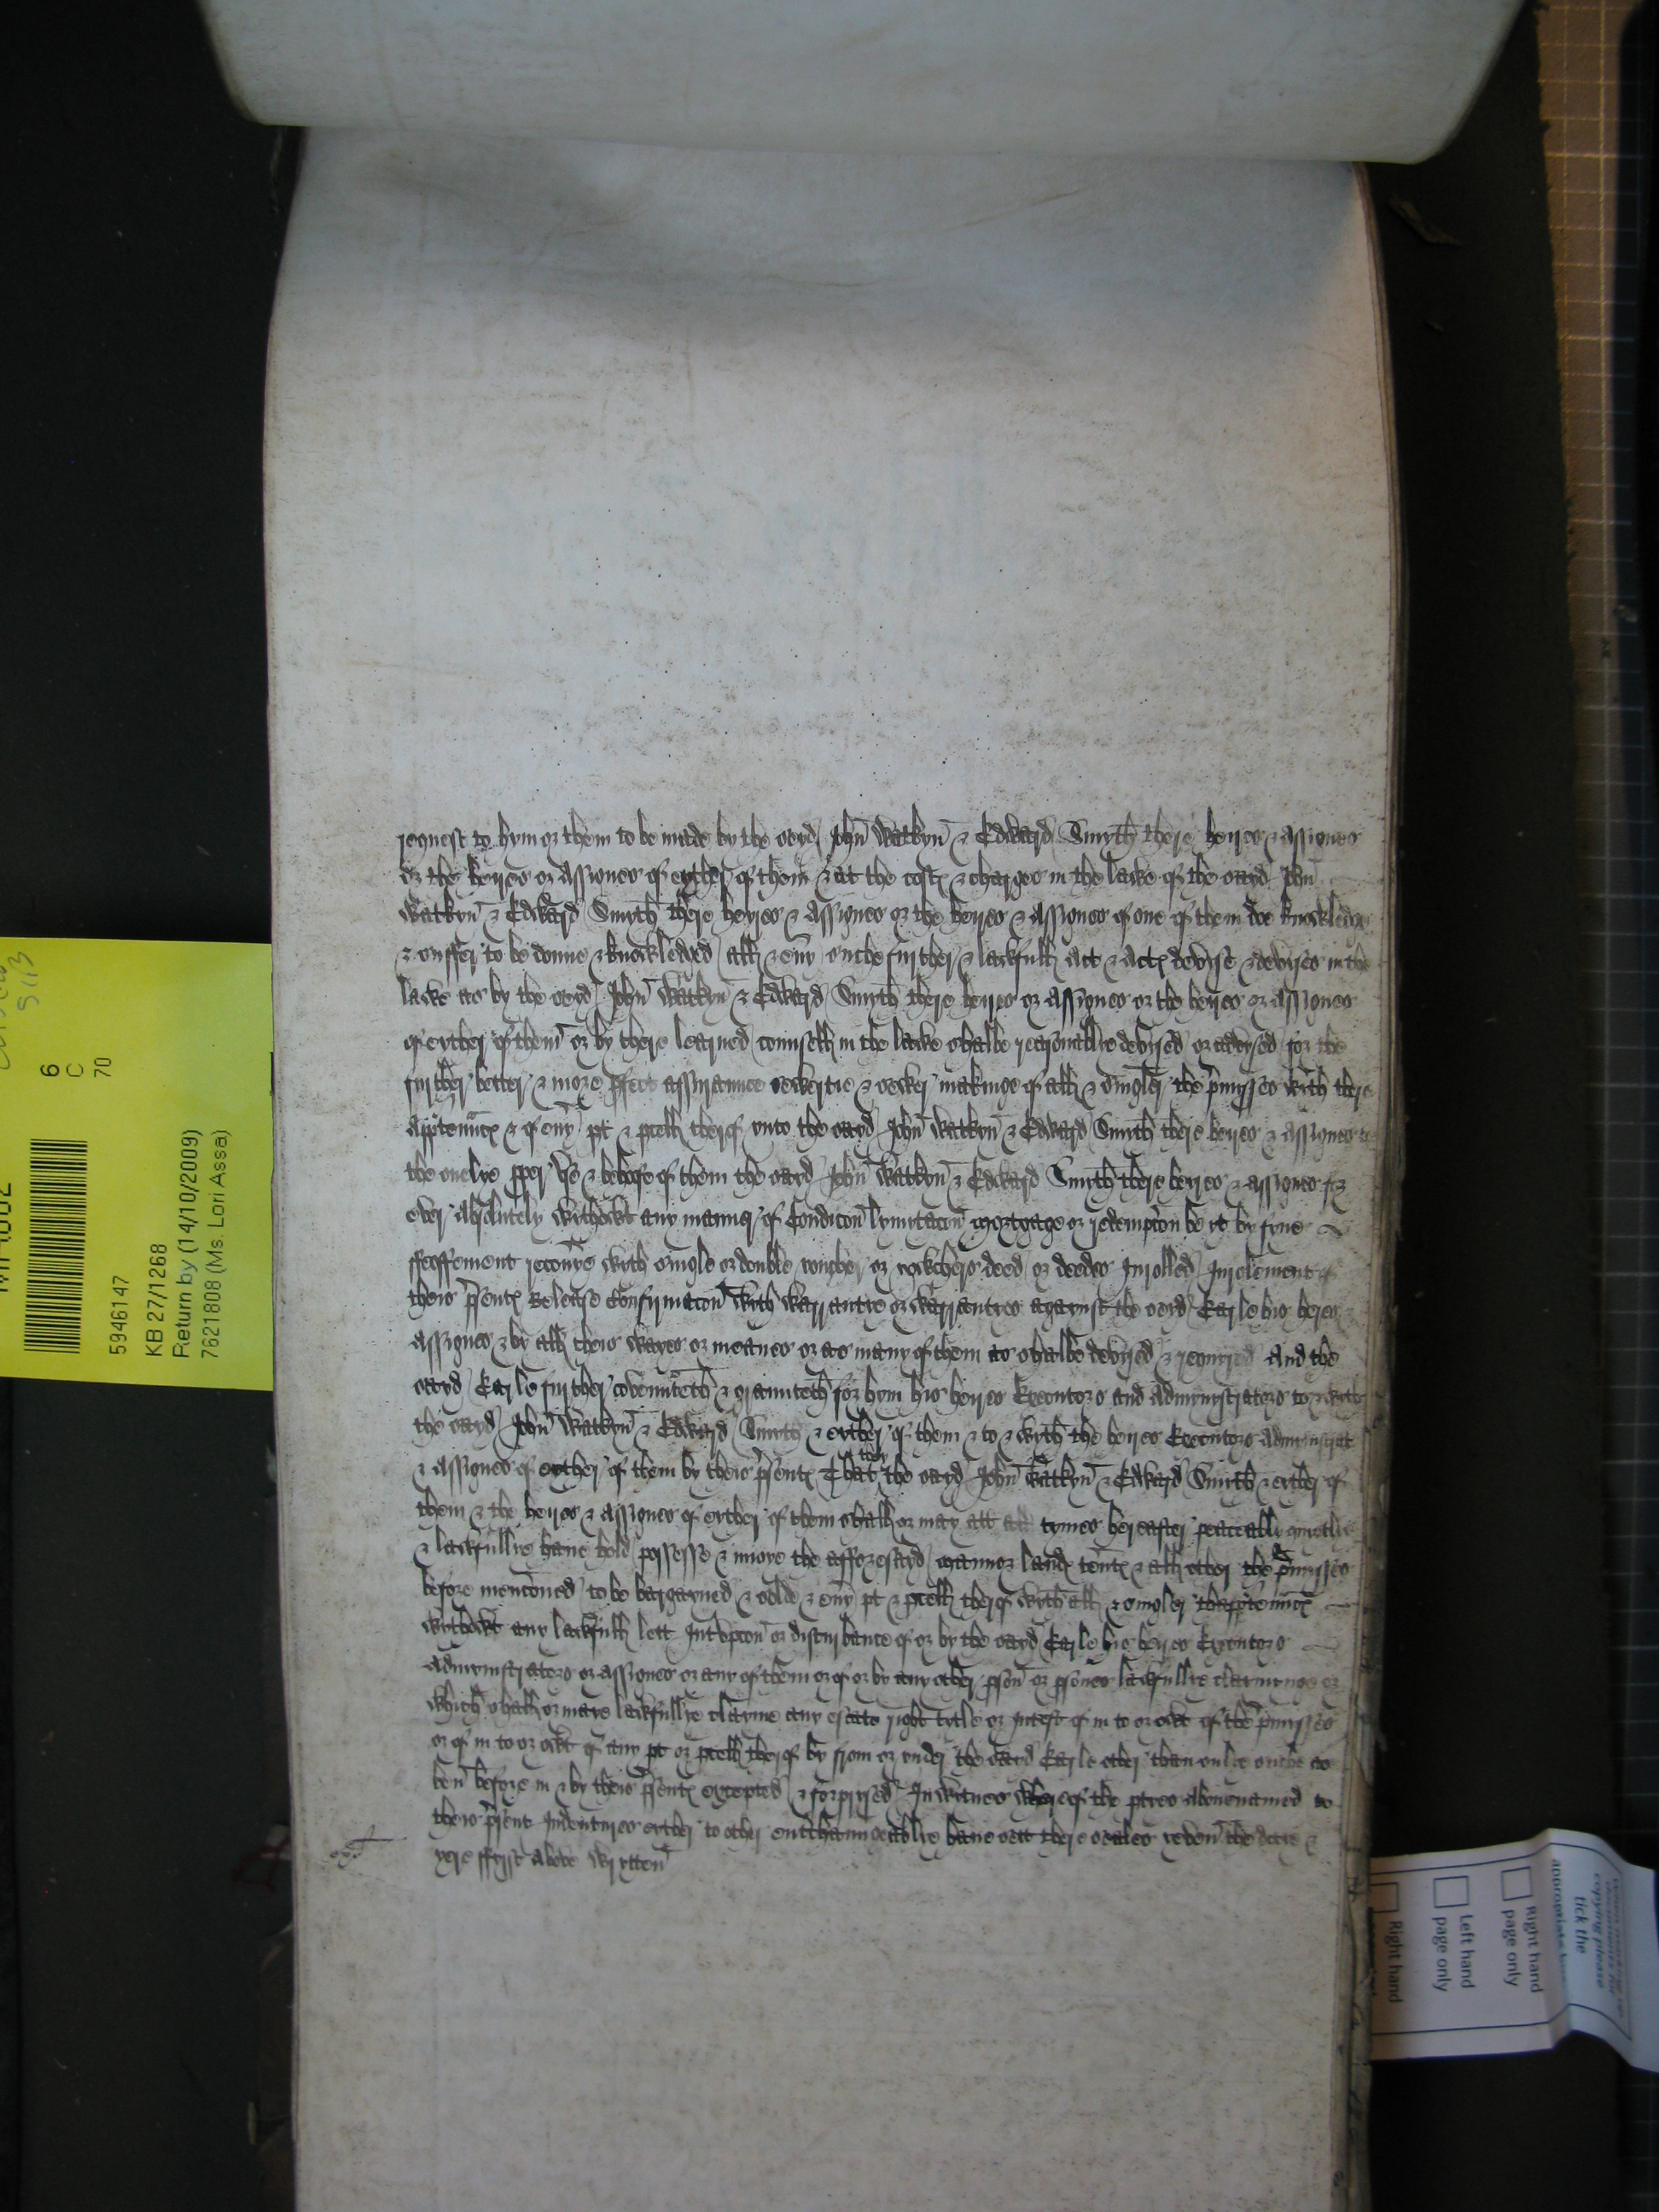 request to hym or them to be made by the seyd John Watkyn & Edward Smyth there heyres & assignes
or the heyres or assignes of eyther of them & at the costs & charges in the lawe of the sayd John
Watkyn & Edward Smyth there heyres & assignes or the heyres & assignes of one of them doe knowledge
& suffer to be donne & knowledged all & eny suche further & lawfull act & acts devise & devises in the
lawe as by the seyd John Watkyn & Edward Smyth there heyres or assignes or the heyres or assignes
of eyther of them or by there learned counsell in the lawe shalbe reasonablie devised or advysed for the
further better & more pfect assuraunce suertie & suer makinge of all & singler the pmysses with there
apptennces & of eny pt & pcell therof unto the sayd John Watkyn & Edward Smyth there heyres & assignes to
the onelye pper use & behofe of them the sayd John Watkyn & Edward Smyth there heyres & assignes for
ever absolutely wythowt any manner of Condicon lymytacon mortgage or redempcon be yt by fyne
ffeoffement recoverye with single or double voucher or vowchers deed or deedes Inrolled Inrolement of
theis psents Release Confirmacon with warrantye or warrantyes agaynst the seyd Earle his heyres &
assignes & by all theis wayes or meanes or as many of them as shalbe devised & requyred And the
sayd Earle further covenuteth & graunteth for hym his heyres Executors and Admynystrators to & with
the sayd John Watkyn & Edward Smyth & eyther of them & to & wyth the heyres Executors Administrat
& Assignes of eyther of them by theis psents That they the sayd John Watkyn & Edward Smyth & eyther of
them & the heyres & assignes of eyther of them shall or may att all tymes hereafter peaceably quietlie
& lawfullye have hold possesse & injoye the afforesayd mannor lands tents & all other the pmysses
before menconed to be bargayned & solde & eny pt & pcell therof wyth all & singler thapptennces
wythowt any lawfull lett Intrupcon or disturbance of or by the sayd Earle his heyres Executors
Admynistrators or assignes or any of them or of or by any other pson or psones lawfullye claymynge or
which shall or maye lawfullye clayme any estate right tytle or Intest of in to or owt of the pmysses
or of in to or owt of any pt or pcell therof by from or under the sayd Earle other than onlie suche as
ben before in & by theis psents excepted & forprysed In wytnes wherof the ptyes abovenamed to
theis psent Indentures eyther to other entchaungeablye have sett there seales yeven the daye &
yere ffyrst above wrytten
6
C
70
5946147
KB 27/1268
Return by (14/10/2009)
7621808 (Ms. Lori Assa)
tick the
Right hand
page only
Left hand
page only
Right hand